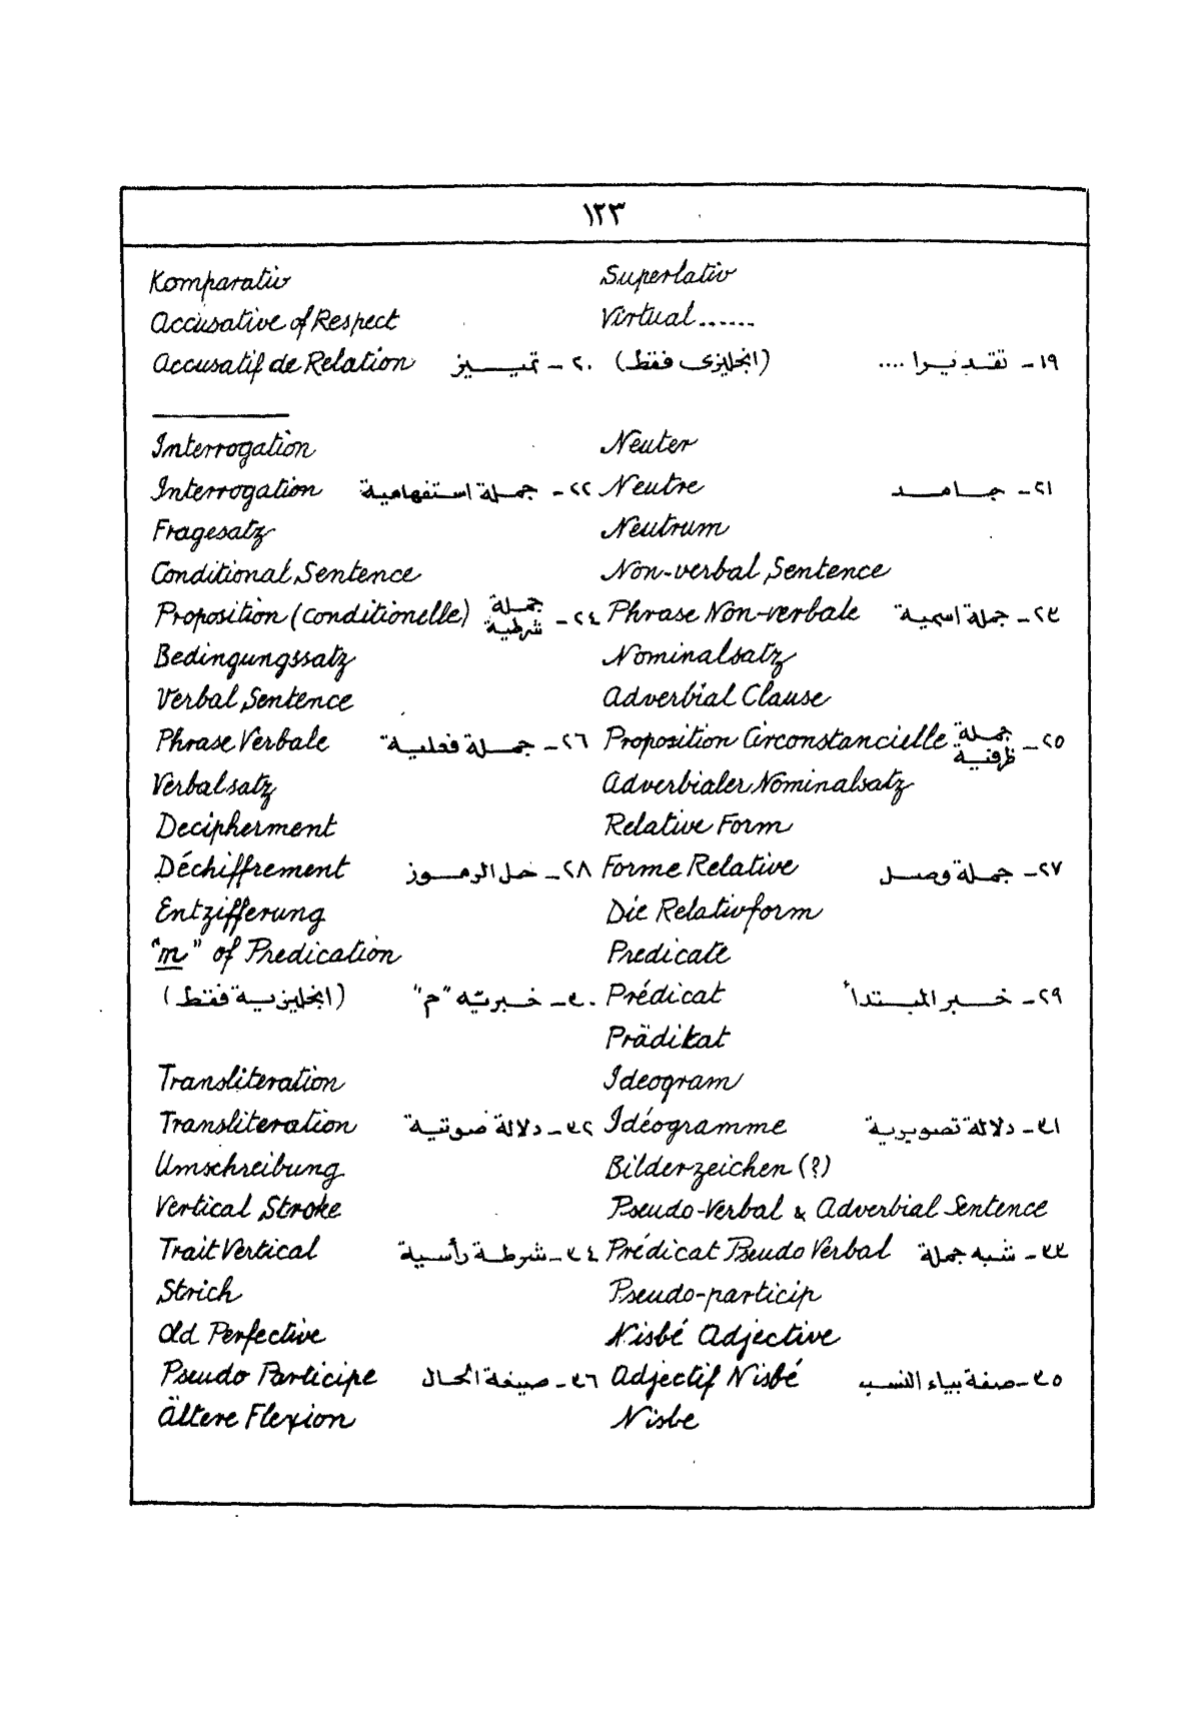 ١٢٣
Komparativ Superlativ
Accusative of Respect Virtual......
Accusatif de Relation ٢٠- تمييز (انجليزى فقط) ١٩- تقديرا ....
Interrogation Neuter
Interrogation ٢٢- جملة استفهامية Neutre ٢١- جامد
Fragesatz Neutrum
Conditional Sentence Non-verbal Sentence
Proposition (conditionelle) ٢٤- جملة شرطية Phrase Non-verbale ٢٣- جملة اسمية
Bedingungssatz Nominalsatz
Verbal Sentence Adverbial Clause
Phrase Verbale ٢٦- جملة فعلية Proposition Circonstancielle ٢٥- جملة ظرفية
Verbalsatz Adverbialer Nominalsatz
Decipherment Relative Form
Déchiffrement ٢٨- حل الرموز Forme Relative ٢٧- جملة وصل
Entzifferung Die Relativform
"m" of Predication Predicate
(انجليزية فقط) ٣٠- خبريّه "م" Prédicat ٢٩- خبر المبتدأ
Prädikat
Transliteration Ideogram
Transliteration ٣٢- دلالة صوتية Idéogramme ٣١- دلالة تصويرية
Umschreibung Bilderzeichen (?)
Vertical Stroke Pseudo-Verbal & Adverbial Sentence
Trait Vertical ٣٤- شرطة رأسية Prédicat Pseudo Verbal ٣٣- شبه جملة
Strich Pseudo-particip
Old Perfective Nisbé Adjective
Pseudo Participe ٣٦- صيغة الحال Adjectif Nisbé ٣٥- صفة بياء النسب
Ältere Flexion Nisbe